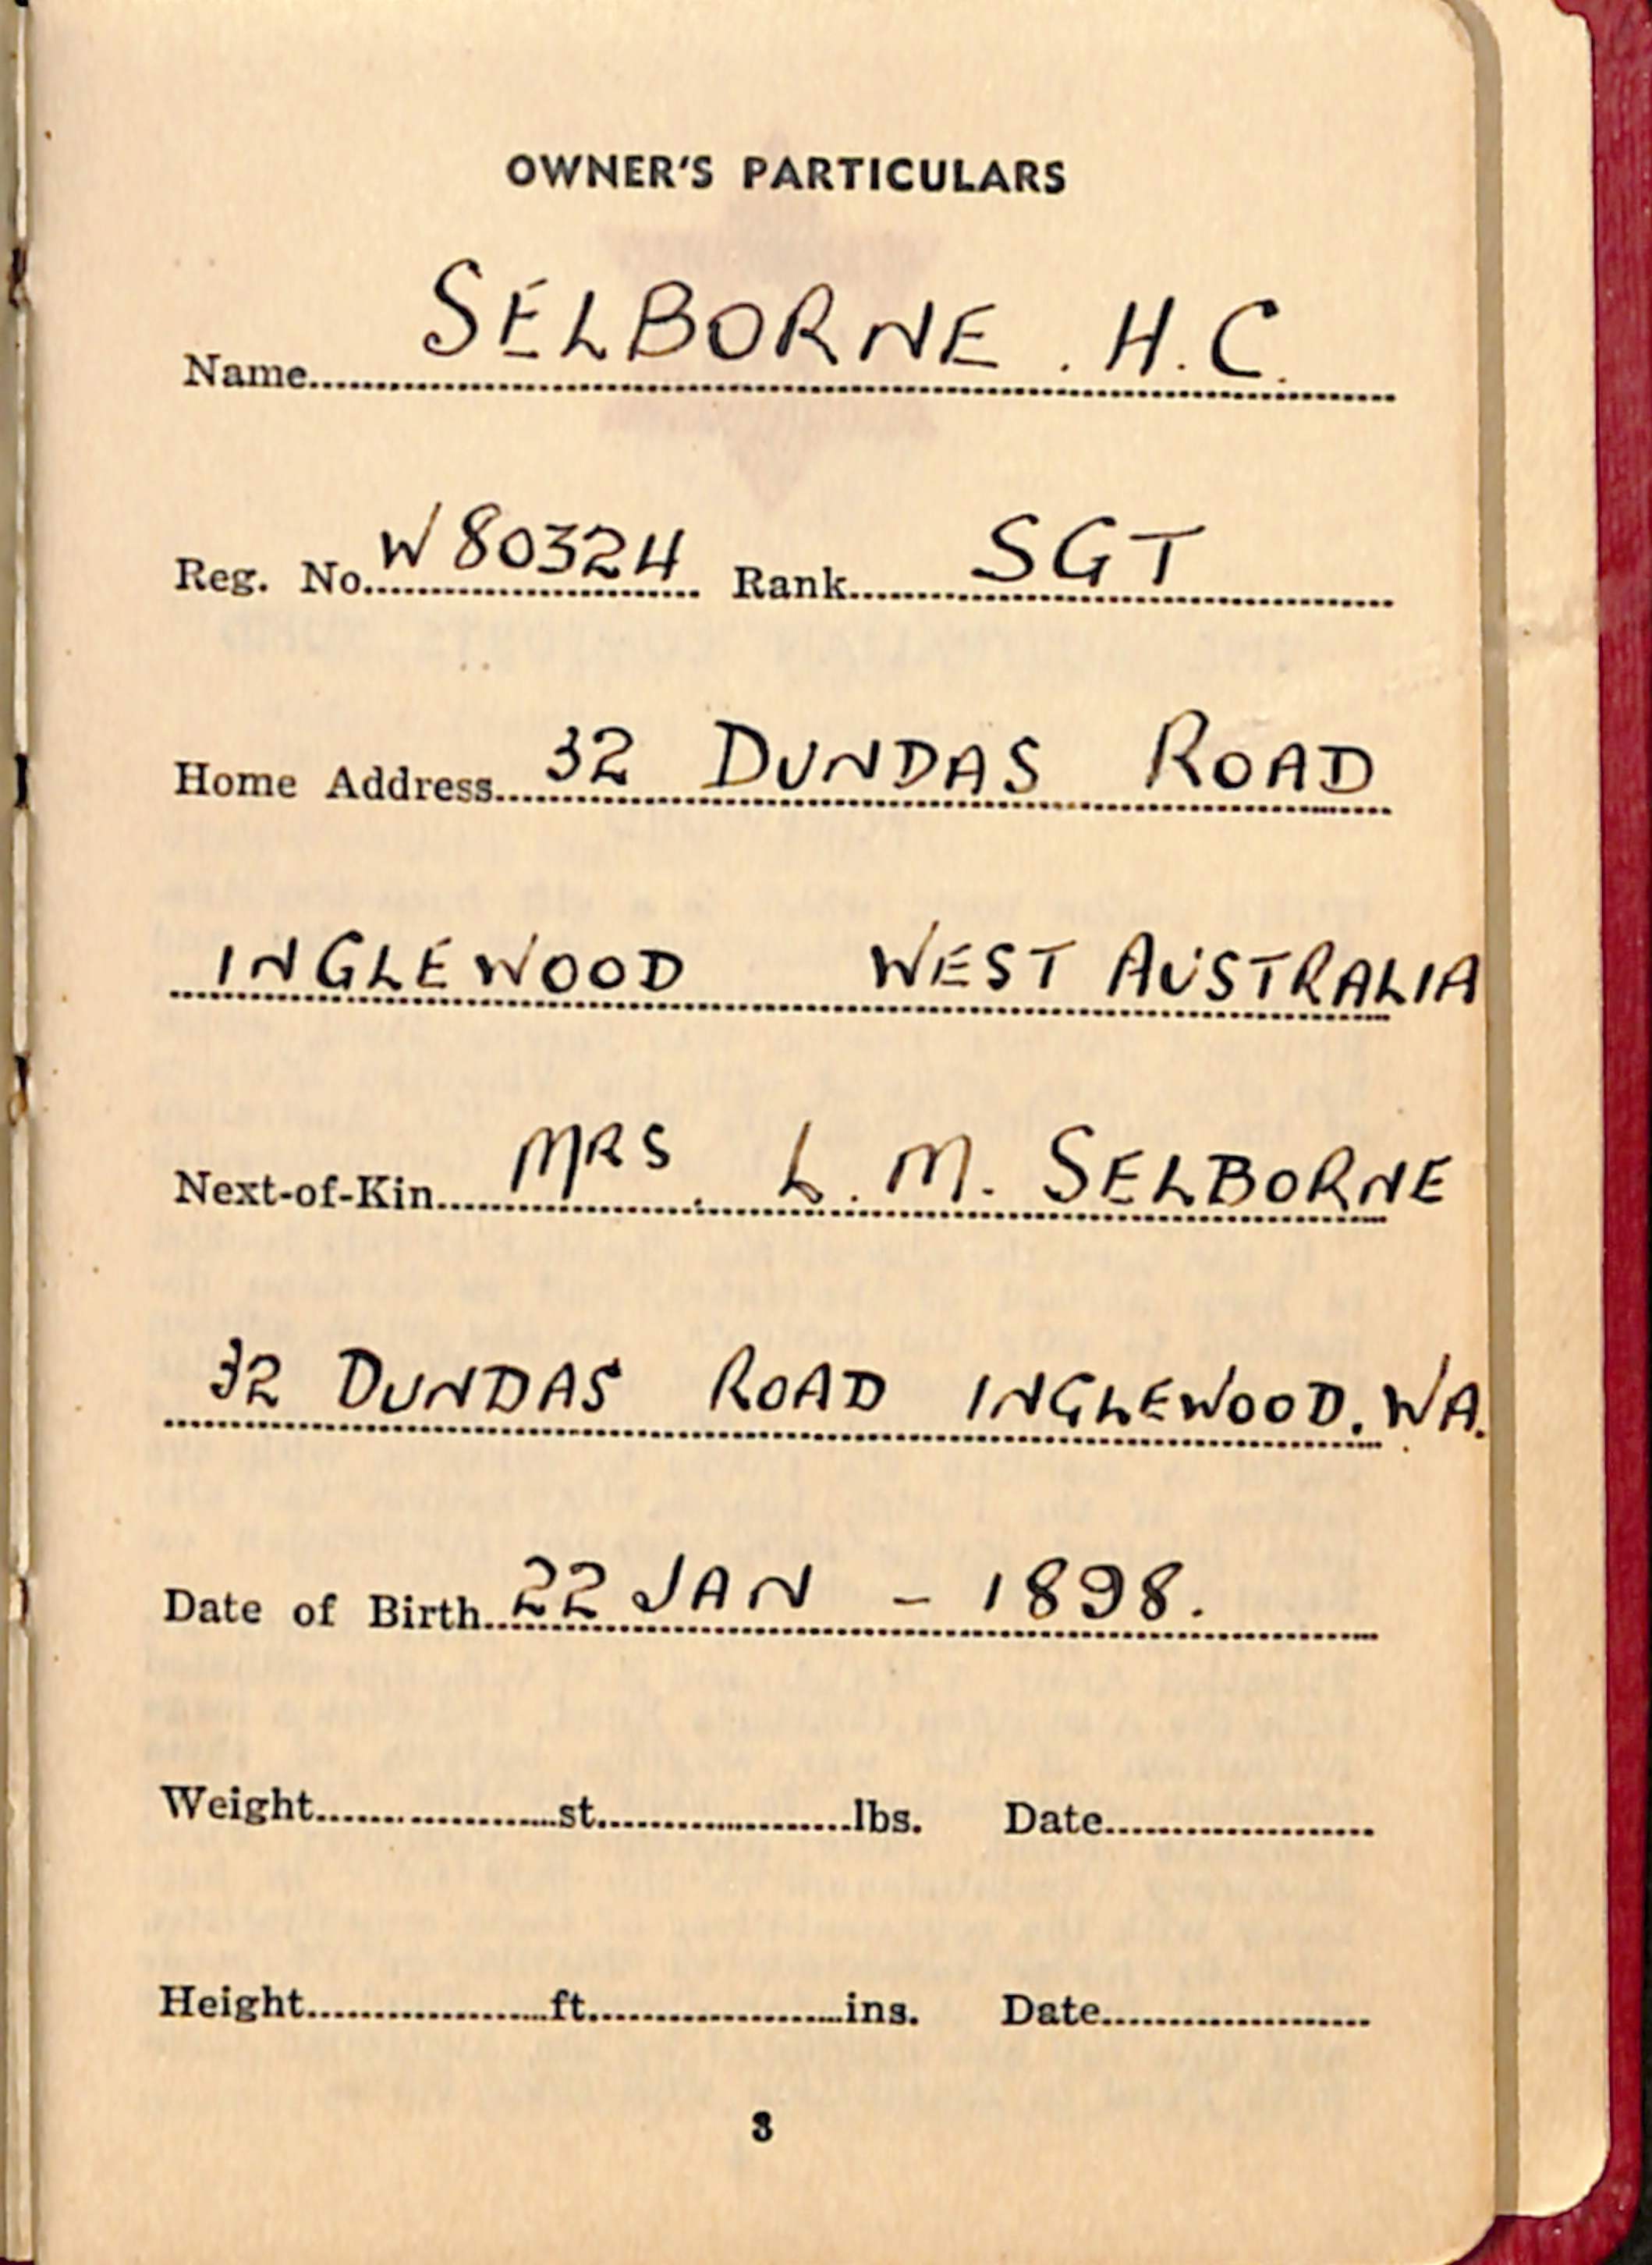 OWNER'S PARTICULARS
Name SELBORNE . H. C.
Reg. No. W80324 Rank SGT
Home Address 32 DUNDAS ROAD
INGLEWOOD WEST AUSTRALIA
Next-of-Kin MRS. L. M. SELBORNE
32 DUNDAS ROAD INGLEWOOD. WA.
Date of Birth 22 JAN - 1898.
Weight..........st..........lbs. Date..........
Height..........ft..........ins. Date..........
3